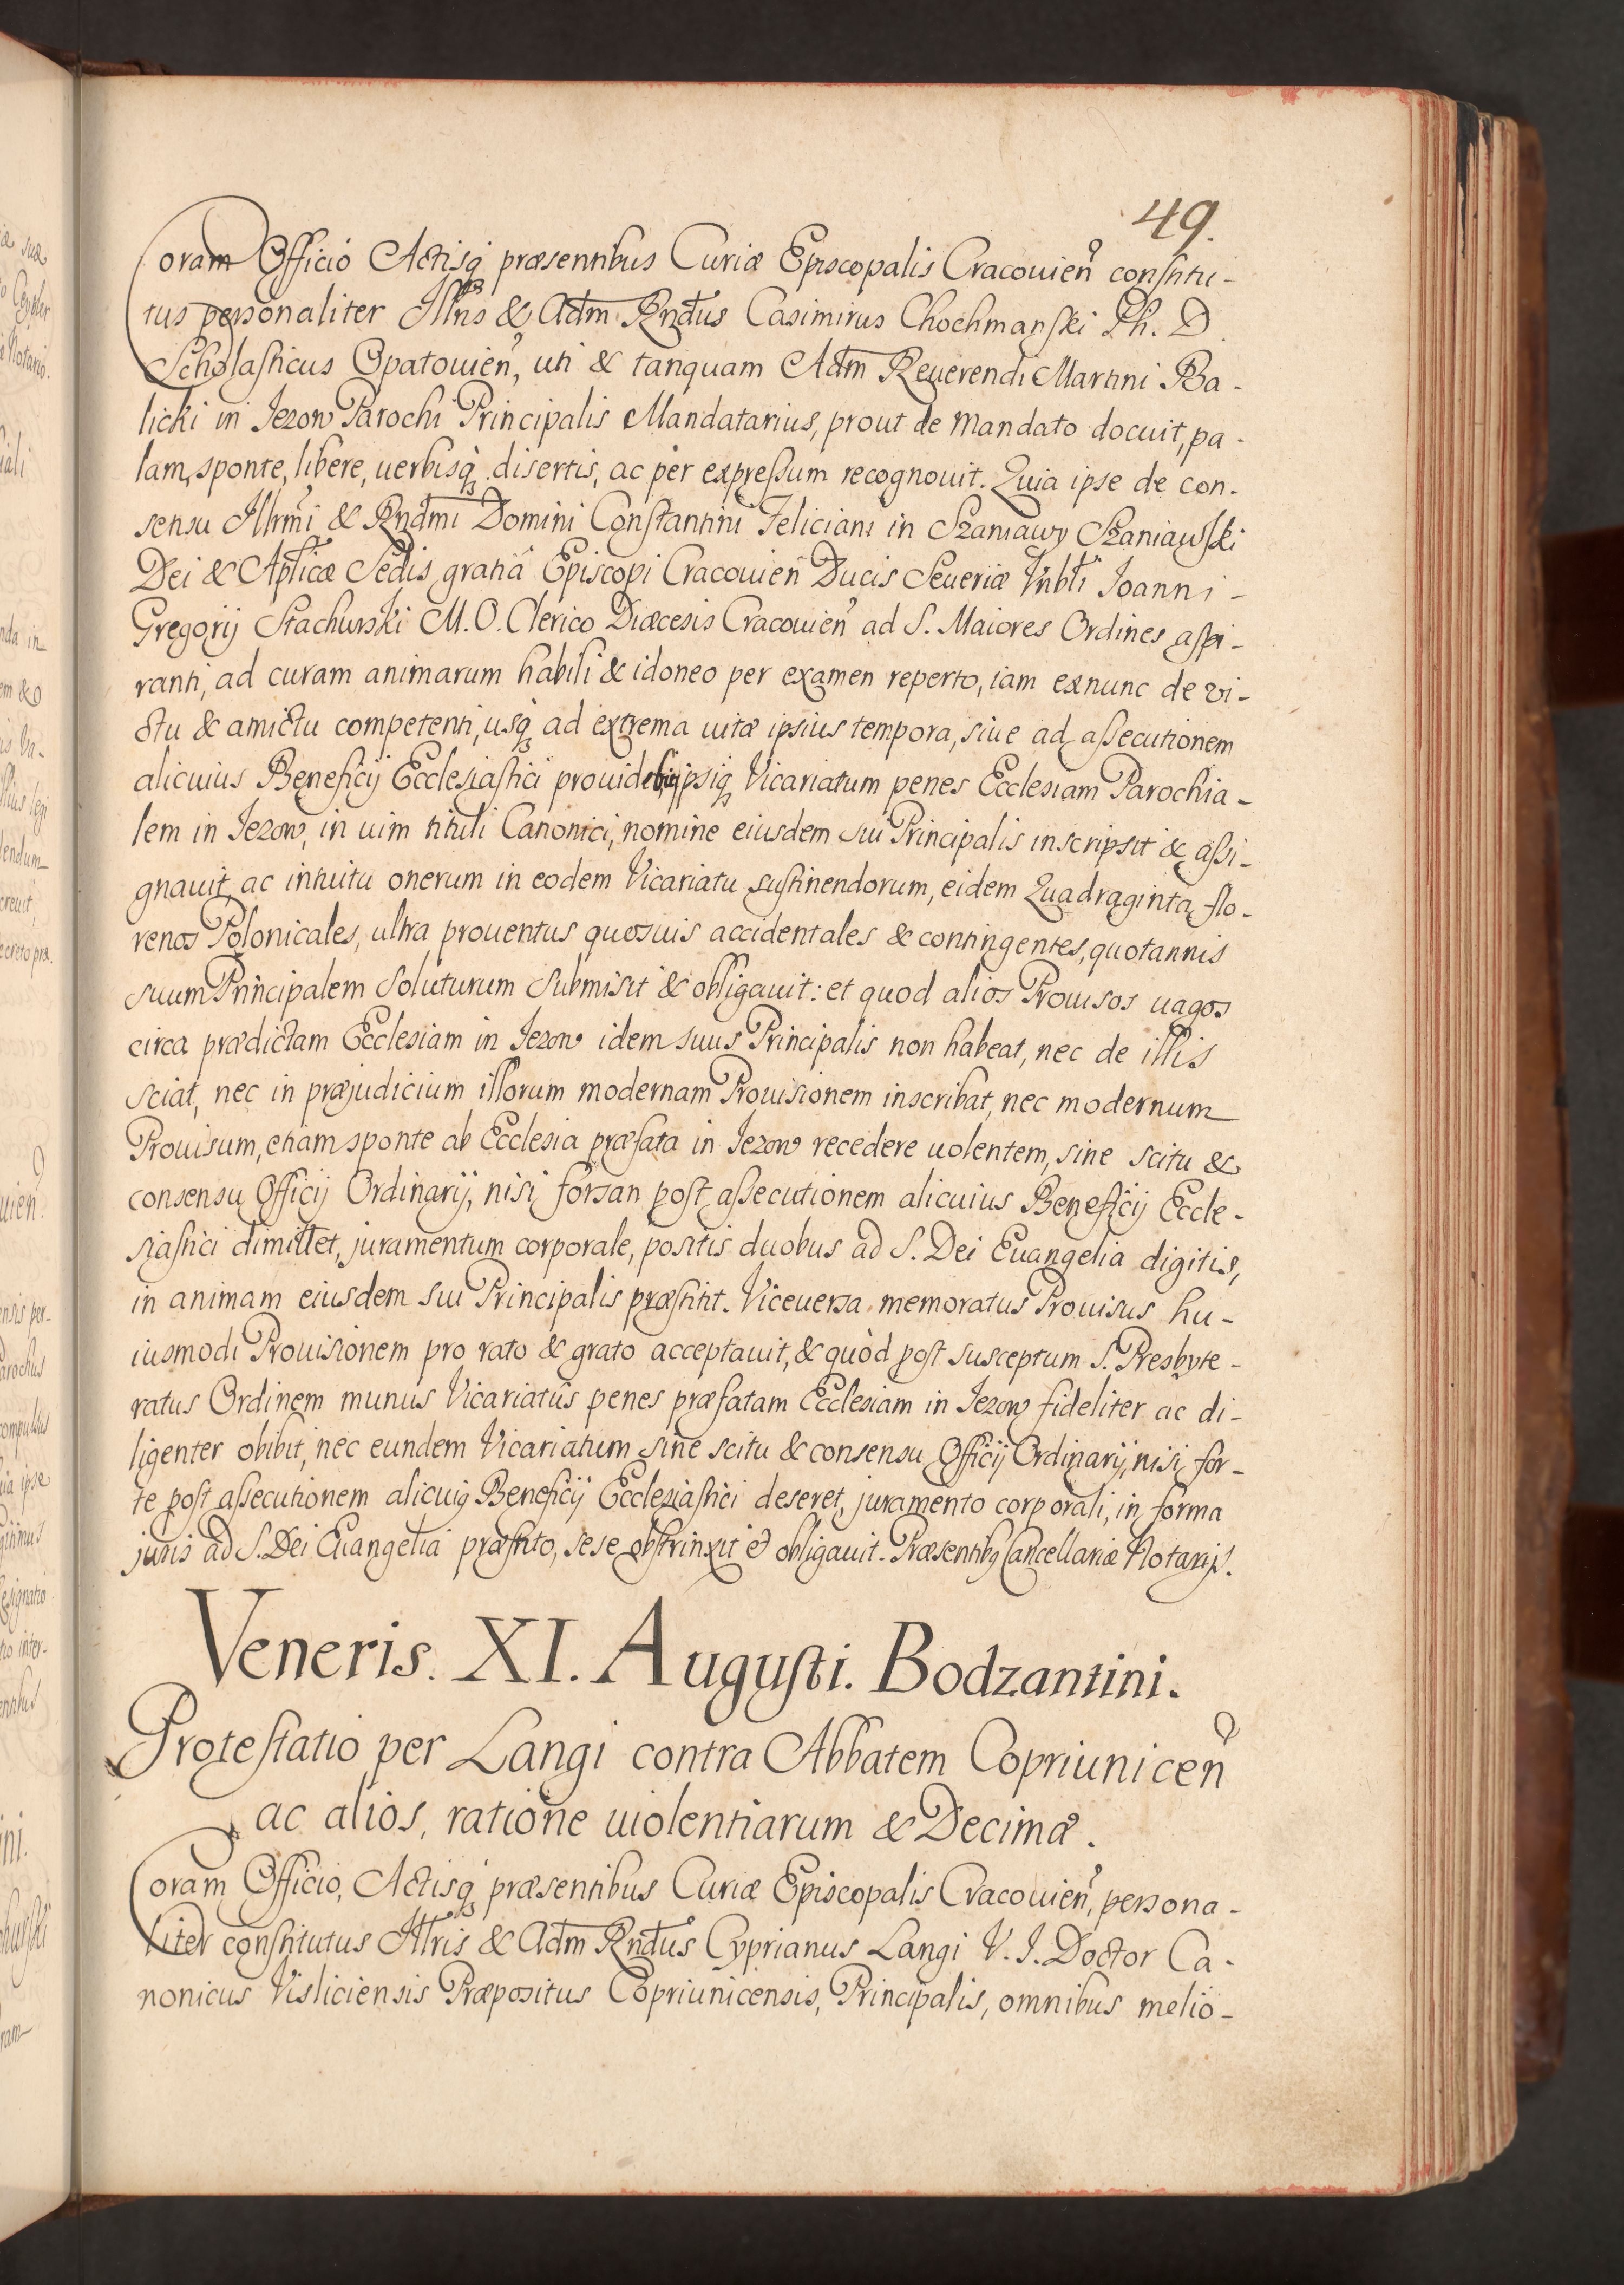 49.
Coram Officio Actisq̨ præsentibus Curiæ Episcopalis Cracouien̄ constitu-
tus personaliter Illris & Adm Rndus Casimirus Chochmanski Ph. D.
Scholasticus Opatouien̄, uti & tanquam Adm Reuerendi Martini Ba-
licki in Jezow Parochi Principalis Mandatarius, prout de mandato docuit, pa-
lam, sponte, libere, uerbisq̨ disertis, ac per expressum recognouit. Quia ipse de con-
sensu Illrmi & Rndmi Domini Constantini Feliciani in Szaniawy Szaniawski
Dei & Aplicæ Sedis gratiâ Episcopi Cracouien̄ Ducis Seueriæ Vnbli Joanni
Gregorij Stachurski M. O. Clerico Diæcesis Cracouien̄ ad S. Maiores Ordines aspi-
ranti, ad curam animarum habili & idoneo per examen reperto, iam exnunc de vi-
ctu & amictu competenti, usq̨ ad extrema uitæ ipsius tempora, siue ad assecutionem
alicuius Beneficij Ecclesiastici prouidebit, ipsiq̨ Vicariatum penes Ecclesiam Parochia-
lem in Jezow, in uim tituli Canonici, nomine eiusdem sui Principalis inscripsit & assi-
gnauit, ac intuitu onerum in eodem Vicariatu sustinendorum, eidem Quadraginta flo-
renos Polonicales, ultra prouentus quosuis accidentales & contingentes, quotannis
suum Principalem soluturum submisit & obligauit: et quod alios Prouisos uagos
circa prædictam Ecclesiam in Jezow idem suus Principalis non habeat, nec de illis
sciat, nec in præjudicium illorum modernam Prouisionem inscribat, nec modernum
Prouisum, etiam sponte ab Ecclesia præfata in Jezow recedere uolentem, sine scitu &
consensu Officij Ordinarij, nisi forsan post assecutionem alicuius Beneficij Eccle-
siastici dimittet, juramentum corporale, positis duobus ad S. Dei Euangelia digitis,
in animam eiusdem sui Principalis præstitit. Viceuersa memoratus Prouisus hu-
iusmodi Prouisionem pro rato & grato acceptauit, & quòd post susceptum S. Presbyte-
ratus Ordinem munus Vicariatûs penes præfatam Ecclesiam in Jezow fideliter ac di-
ligenter obibit, nec eundem Vicariatum sine scitu & consensu Officij Ordinarij, nisi for-
te post assecutionem alicuiq Beneficij Ecclesiastici deseret, juramento corporali, in forma
juris ad S. Dei Euangelia præstito, sese obstrinxit et obligauit. Præsentibq Cancellariæ Notarijs.
Veneris. XI. Augusti. Bodzantini.
Protestatio per Langi contra Abbatem Copriunicen̄
ac alios, ratione uiolentiarum & Decimæ.
Coram Officio, Actisq̨ præsentibus Curiæ Episcopalis Cracouien̄, persona-
liter constitutus Illris & Adm Rndus Cyprianus Langi V. J. Doctor Ca-
nonicus Visliciensis Præpositus Copriunicensis, Principalis, omnibus melio-